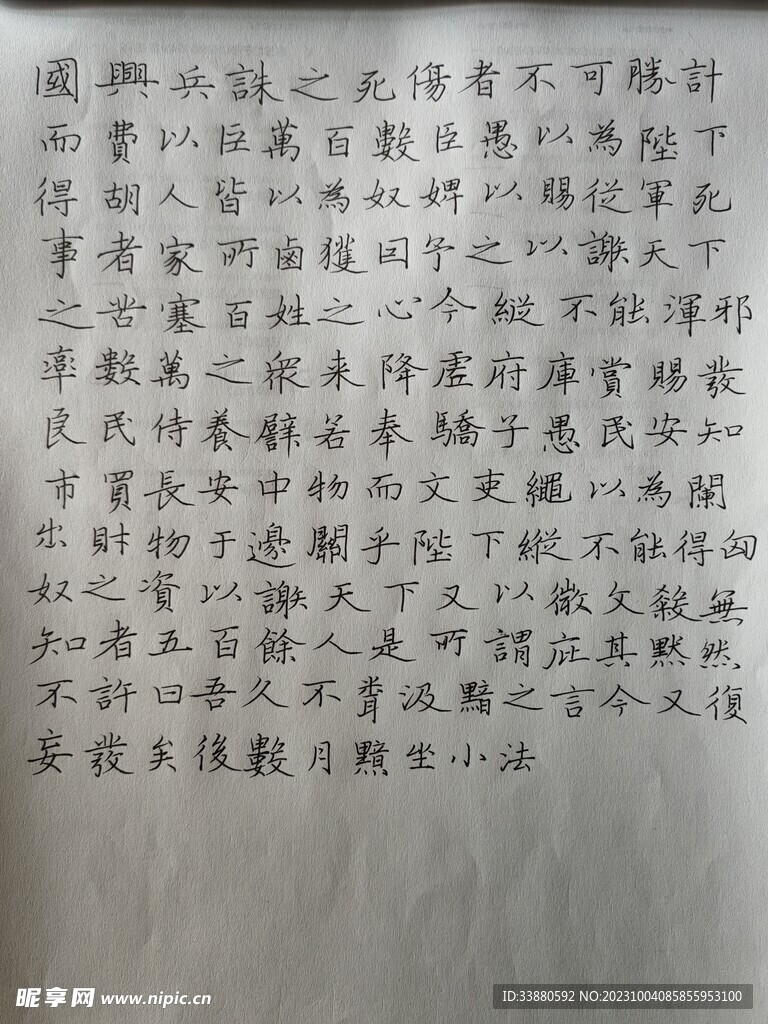 國興兵誅之死傷者不可勝計
而費以臣萬百數臣愚以為陛下
得胡人皆以為奴婢以賜從軍死
事者家所鹵獲因予之以謝天下
之苦塞百姓之心今縱不能渾邪
率數萬之眾来降虛府庫賞賜發
良民侍養譬若奉驕子愚民安知
市買長安中物而文吏繩以為闌
出財物于邊關乎陛下縱不能得匈
奴之資以謝天下又以微文殺無
知者五百餘人是所謂庇其
默然不許曰吾久不聞汲黯之言今又復
妄發矣後數月黯坐小法
昵享网 www.nipic.cn
ID:33880592 NO:20231004085855953100